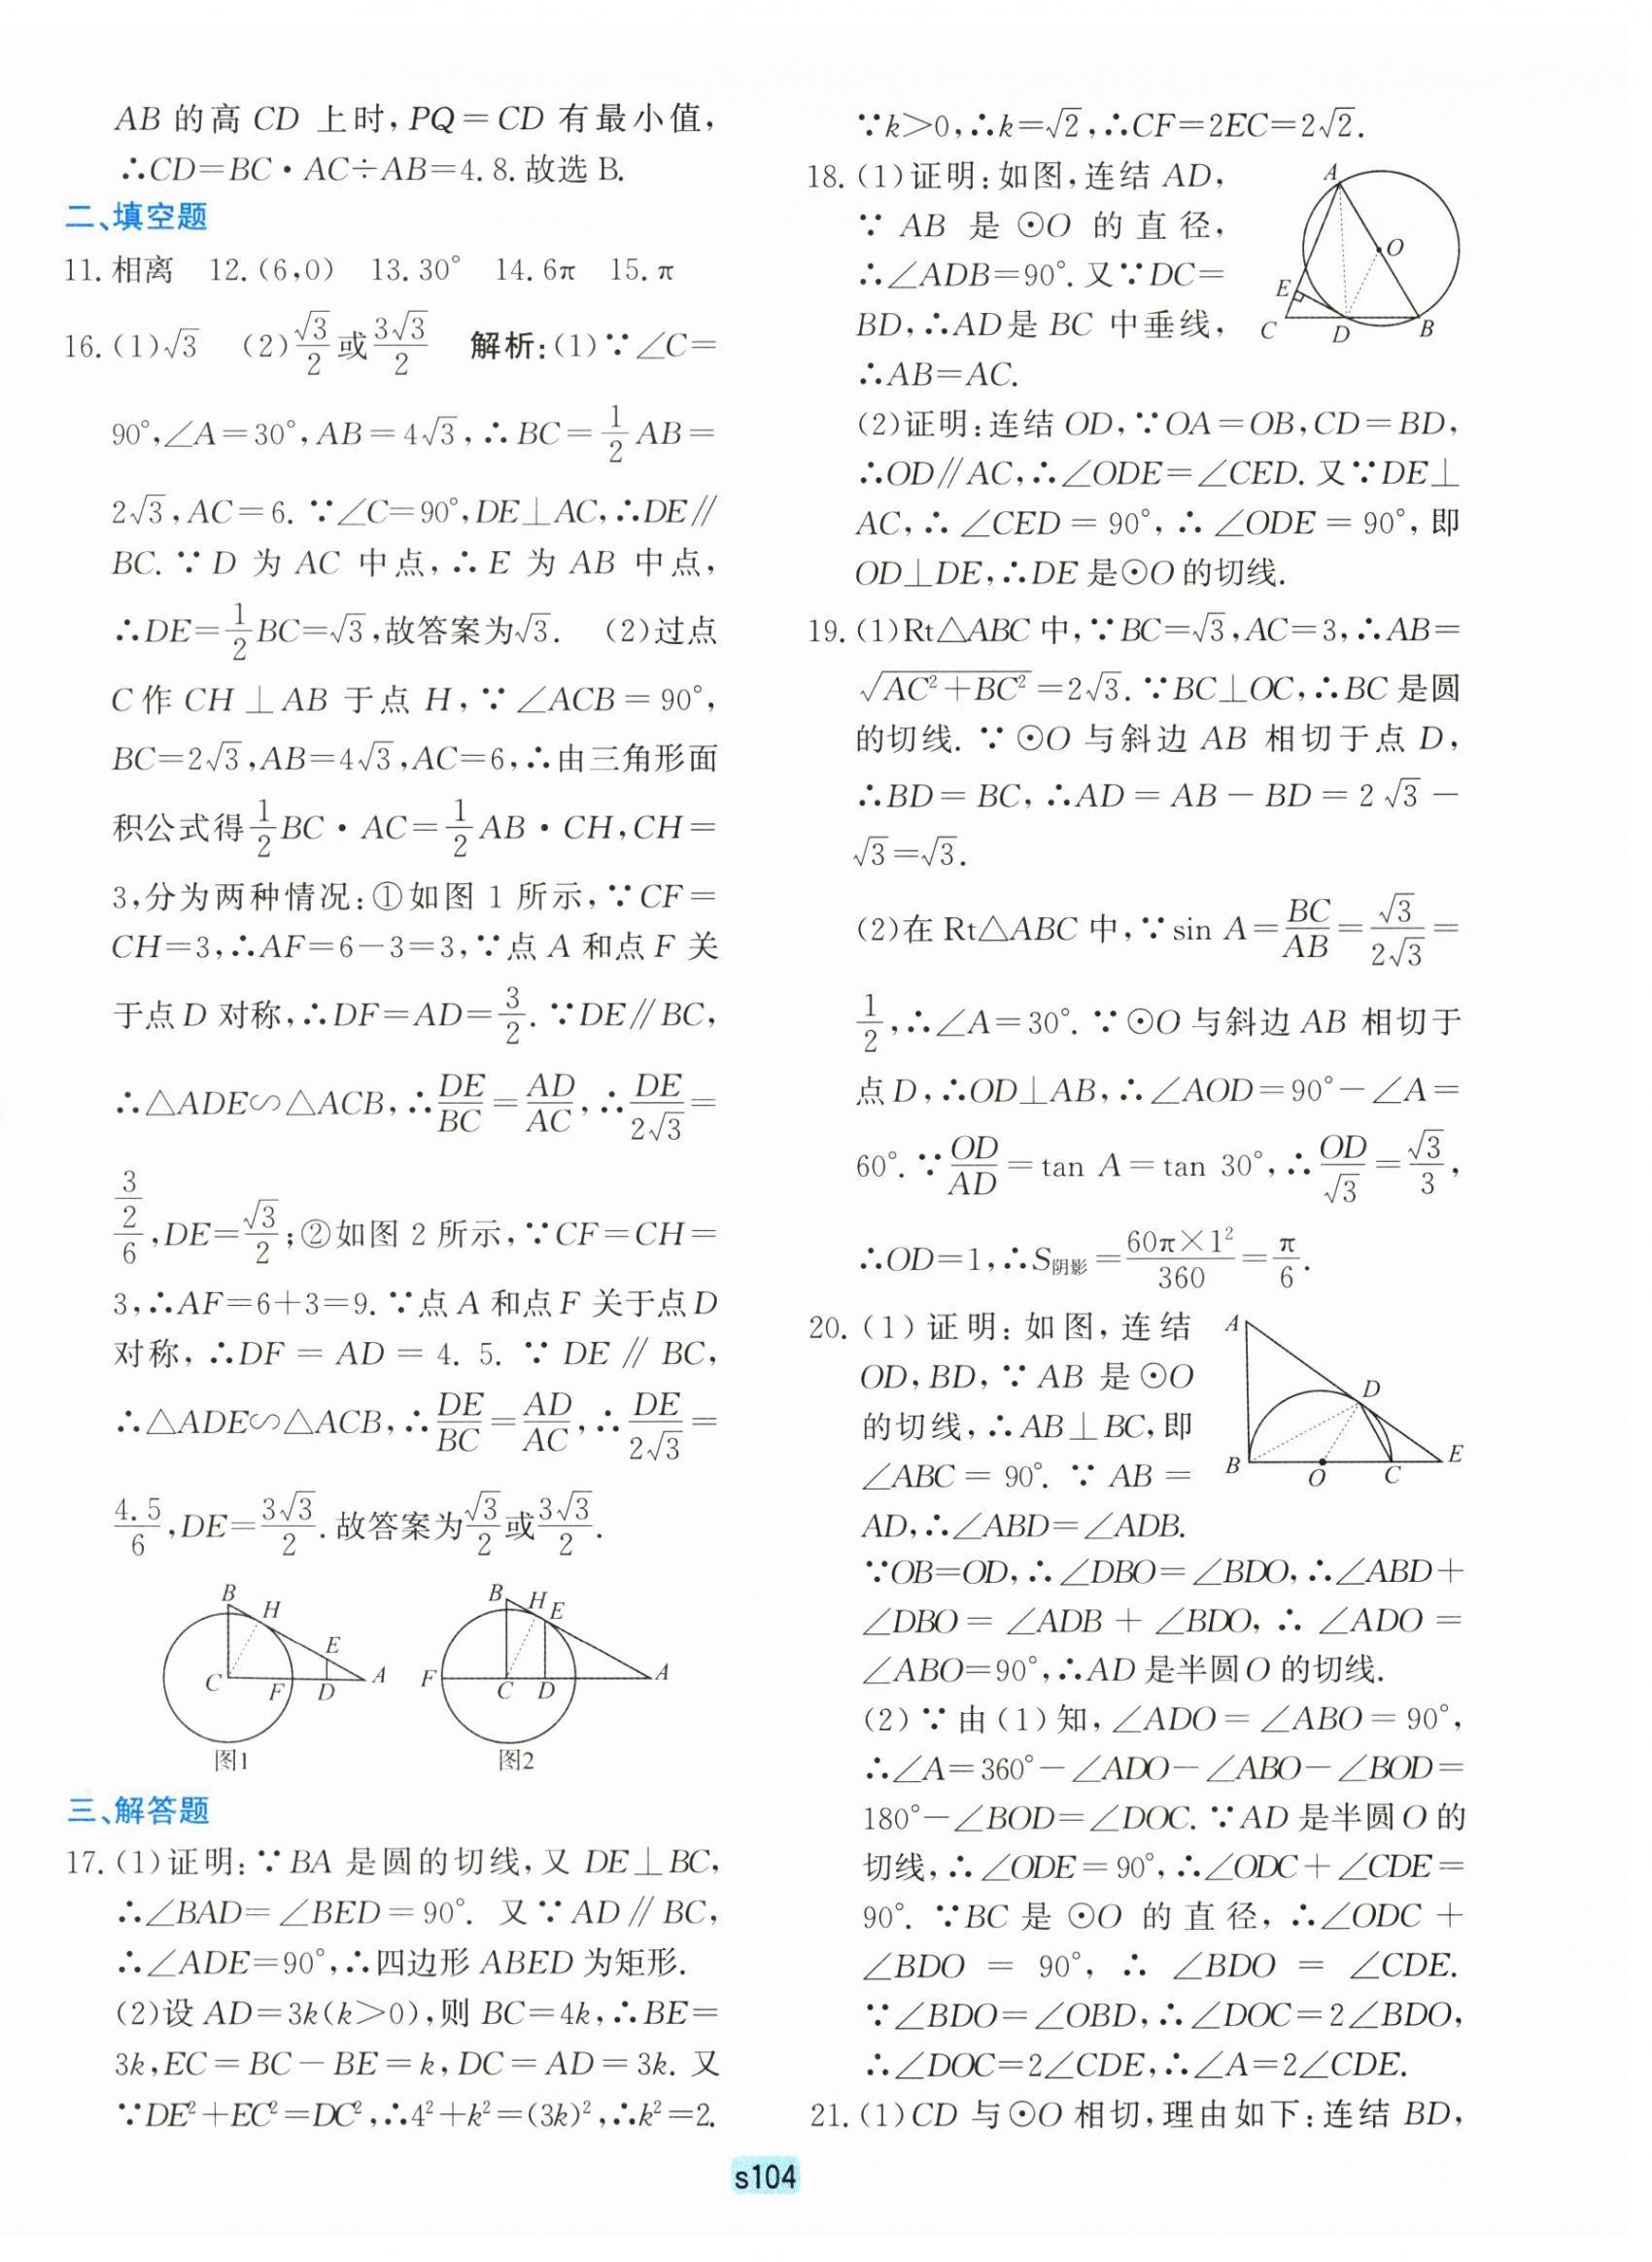 AB 的高 CD 上时,PQ=CD 有最小值,
∴CD=BC·AC÷AB=4.8.故选 B.
二、填空题
11.相离 12.(6,0) 13.30° 14.6π 15.π
16.(1)√3 (2)√3/2或3√3/2 解析:(1)∵∠C=
90°,∠A=30°,AB=4√3,∴BC=1/2AB=
2√3,AC=6.∵∠C=90°,DE⊥AC,∴DE∥
BC.∵D 为 AC 中点,∴E 为 AB 中点,
∴DE=1/2BC=√3,故答案为√3. (2)过点
C 作 CH⊥AB 于点 H,∵∠ACB=90°,
BC=2√3,AB=4√3,AC=6,∴由三角形面
积公式得1/2BC·AC=1/2AB·CH,CH=
3,分为两种情况:①如图 1 所示,∵CF=
CH=3,∴AF=6-3=3,∵点 A 和点 F 关
于点 D 对称,∴DF=AD=3/2.∵DE∥BC,
∴△ADE∽△ACB,∴DE/BC=AD/AC,∴DE/2√3=
(3/2)/6,DE=√3/2;②如图 2 所示,∵CF=CH=
3,∴AF=6+3=9.∵点 A 和点 F 关于点 D
对称,∴DF=AD=4.5.∵DE∥BC,
∴△ADE∽△ACB,∴DE/BC=AD/AC,∴DE/2√3=
4.5/6,DE=3√3/2.故答案为√3/2或3√3/2.
B H E C F D A
图1
B H E F C D A
图2
三、解答题
17.(1)证明:∵BA 是圆的切线,又 DE⊥BC,
∴∠BAD=∠BED=90°.又∵AD∥BC,
∴∠ADE=90°,∴四边形 ABED 为矩形.
(2)设 AD=3k(k>0),则 BC=4k,∴BE=
3k,EC=BC-BE=k,DC=AD=3k.又
∵DE²+EC²=DC²,∴4²+k²=(3k)²,∴k²=2.
∵k>0,∴k=√2,∴CF=2EC=2√2.
18.(1)证明:如图,连结 AD,
∵AB 是⊙O 的直径,
∴∠ADB=90°.又∵DC=
BD,∴AD是 BC 中垂线,
∴AB=AC.
A O E C D B
(2)证明:连结 OD,∵OA=OB,CD=BD,
∴OD∥AC,∴∠ODE=∠CED.又∵DE⊥
AC,∴∠CED=90°,∴∠ODE=90°,即
OD⊥DE,∴DE 是⊙O 的切线.
19.(1)Rt△ABC 中,∵BC=√3,AC=3,∴AB=
√(AC²+BC²)=2√3.∵BC⊥OC,∴BC 是圆
的切线.∵⊙O 与斜边 AB 相切于点 D,
∴BD=BC,∴AD=AB-BD=2√3-
√3=√3.
(2)在 Rt△ABC 中,∵sin A=BC/AB=√3/2√3=
1/2,∴∠A=30°.∵⊙O 与斜边 AB 相切于
点 D,∴OD⊥AB,∴∠AOD=90°-∠A=
60°.∵OD/AD=tan A=tan 30°,∴OD/√3=√3/3,
∴OD=1,∴S阴影=60π×1²/360=π/6.
20.(1)证明:如图,连结
OD,BD,∵AB 是⊙O
的切线,∴AB⊥BC,即
∠ABC=90°.∵AB=
AD,∴∠ABD=∠ADB.
A D B O C E
∵OB=OD,∴∠DBO=∠BDO,∴∠ABD+
∠DBO=∠ADB+∠BDO,∴∠ADO=
∠ABO=90°,∴AD 是半圆 O 的切线.
(2)∵由(1)知,∠ADO=∠ABO=90°,
∴∠A=360°-∠ADO-∠ABO-∠BOD=
180°-∠BOD=∠DOC.∵AD 是半圆 O 的
切线,∴∠ODE=90°,∴∠ODC+∠CDE=
90°.∵BC 是⊙O 的直径,∴∠ODC+
∠BDO=90°,∴∠BDO=∠CDE.
∵∠BDO=∠OBD,∴∠DOC=2∠BDO,
∴∠DOC=2∠CDE,∴∠A=2∠CDE.
21.(1)CD 与⊙O 相切,理由如下:连结 BD,
s104